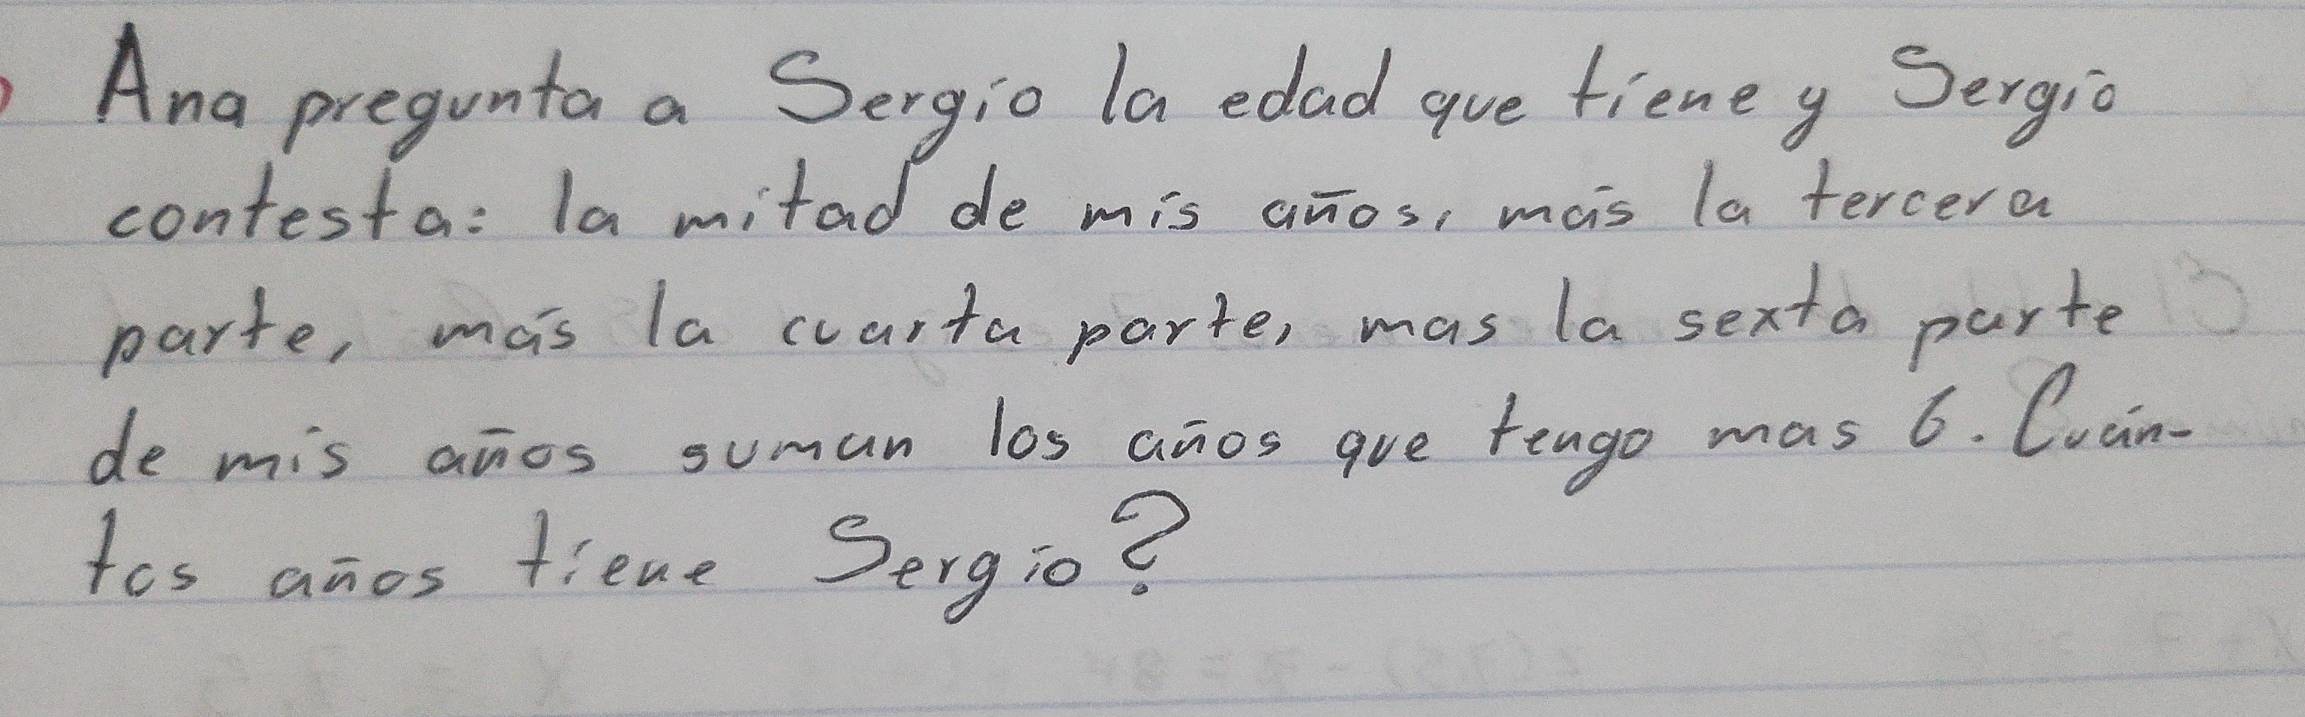 Ana pregunta a Sergio la edad que tiene y Sergio
contesta: la mitad de mis años, más la tercera
parte, más la cuarta parte, mas la sexta parte
de mis años suman los años que tengo mas 6. Cuán-
tos años tiene Sergio?